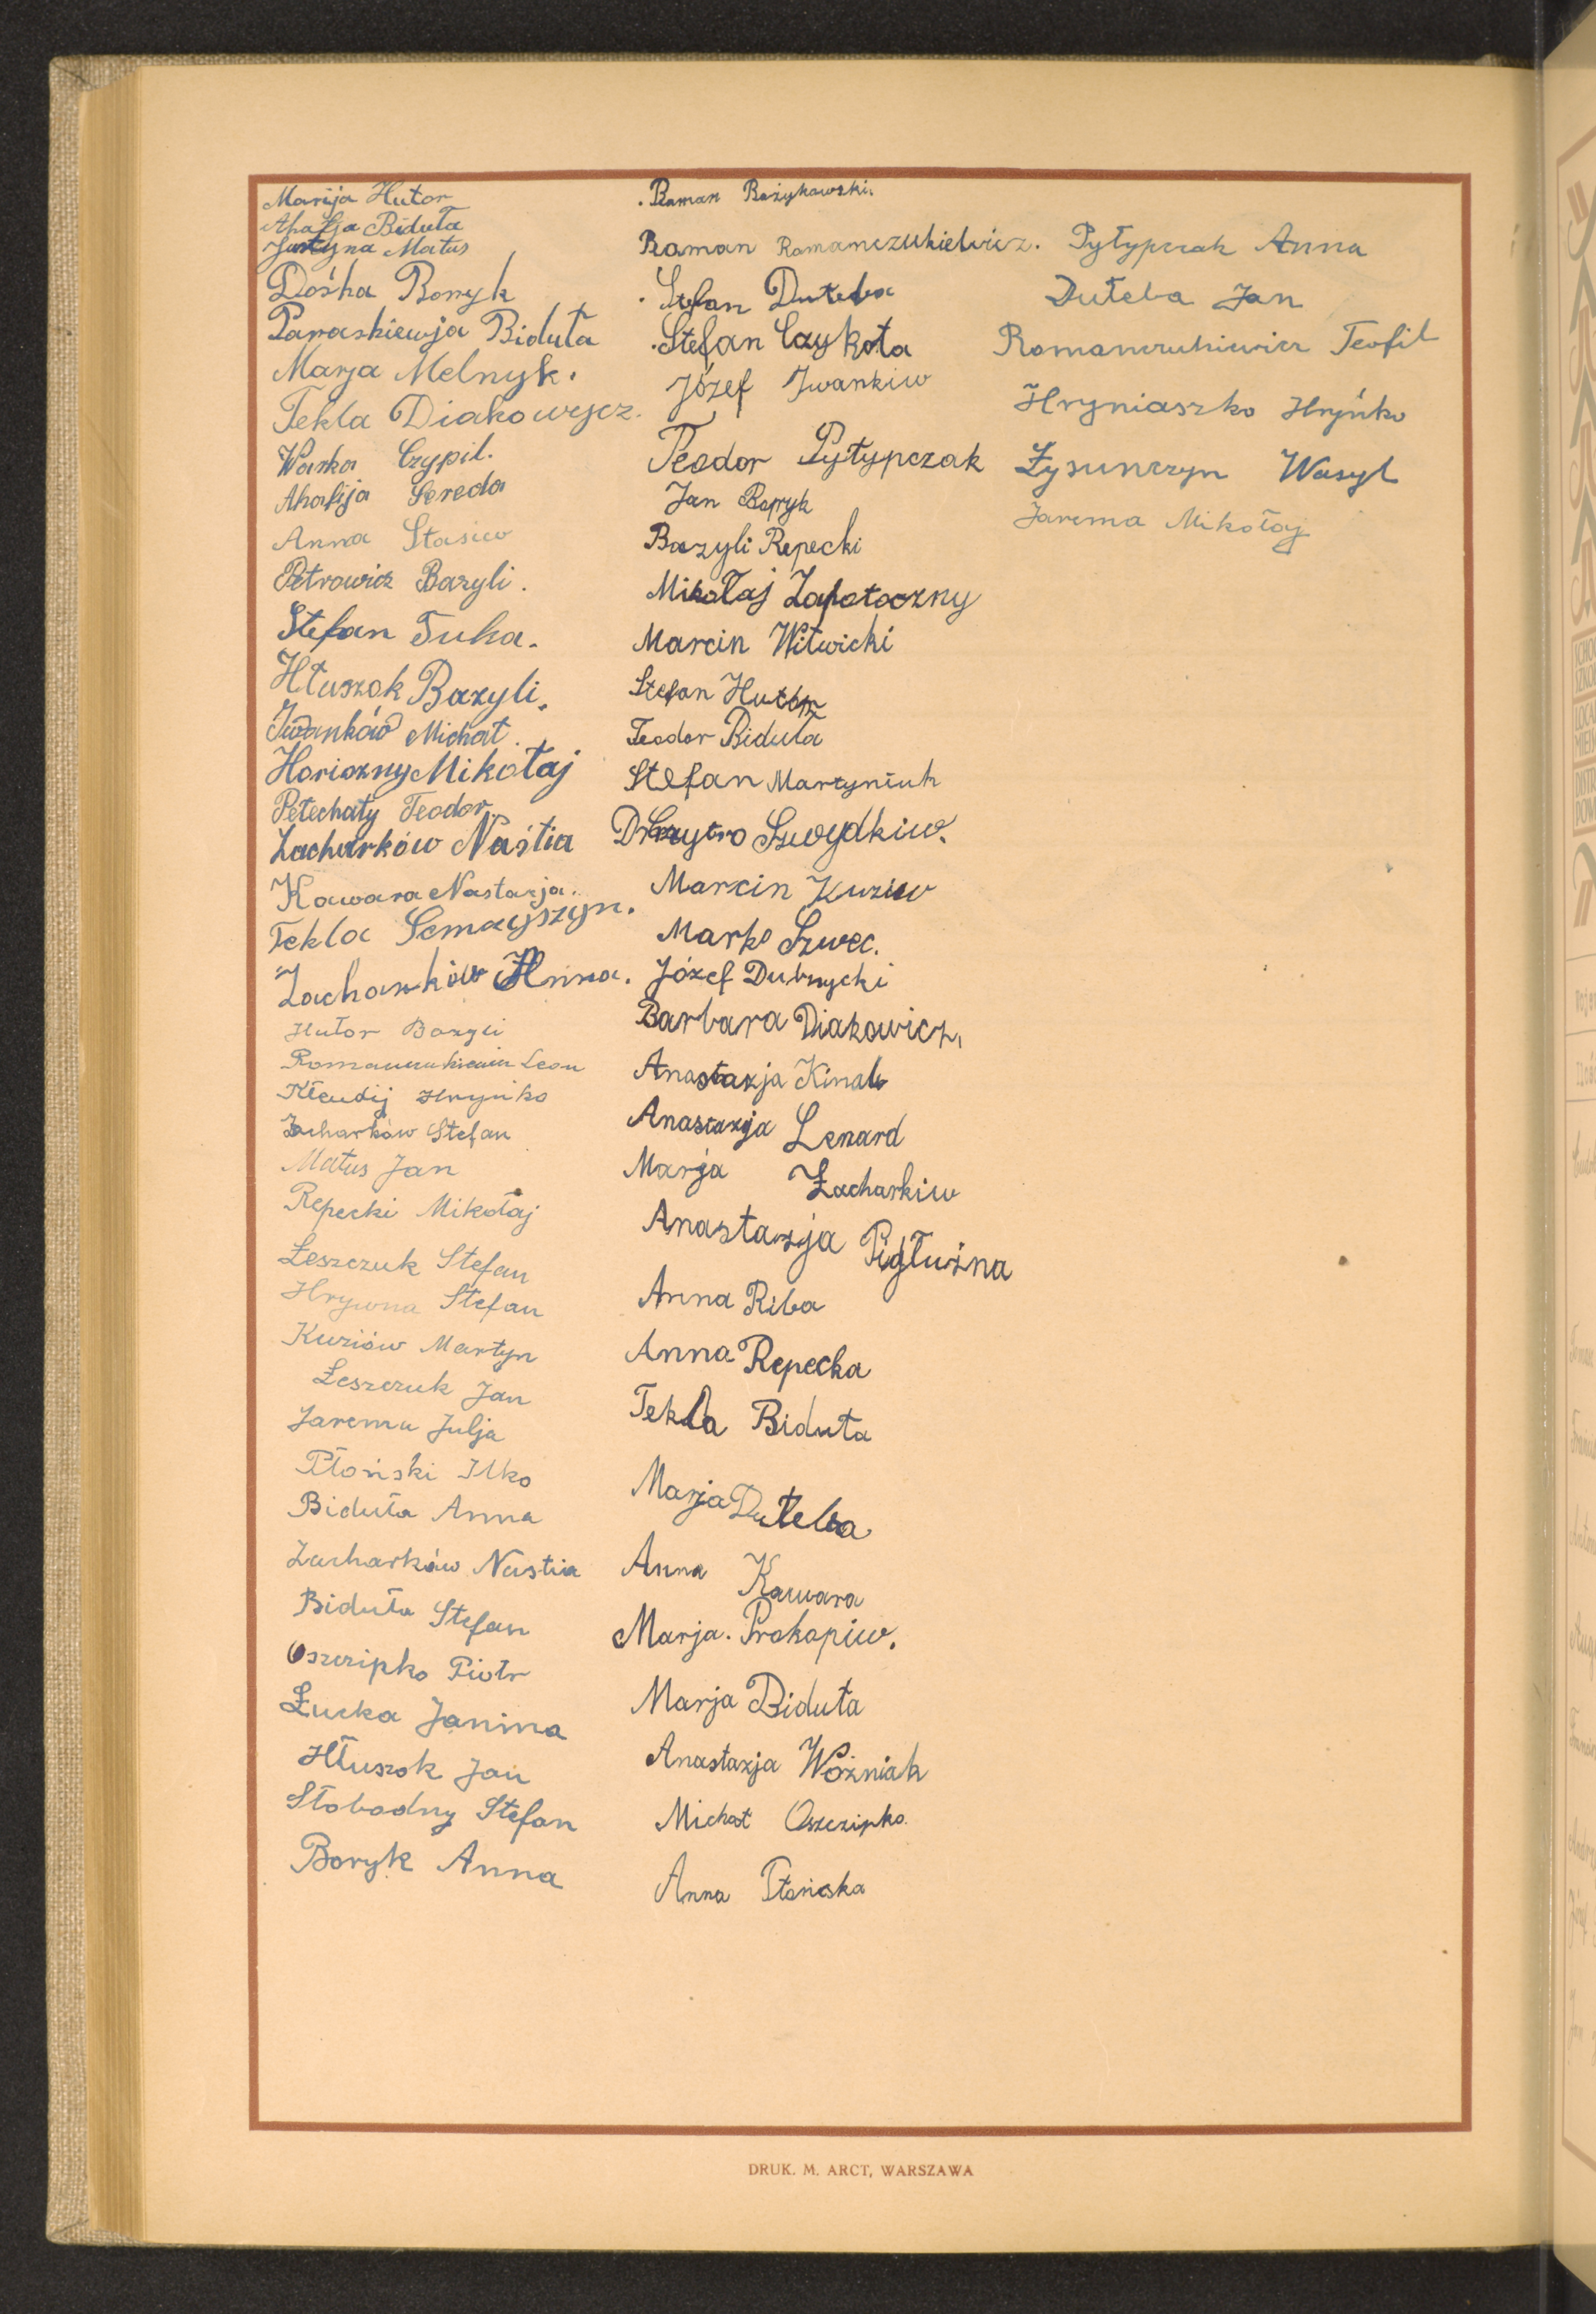 Marija Hutor
Ahafja Biduła
Justyna Matus
Dośka Boryk
Paraskiewja Biduła
Marja Melnyk.
Tekla Diakowycz.
Waśka Czypil.
Ahafija Sereda
Anna Stasiw
Petrowicz Bazyli.
Stefan Tuha.
Hłuszok Bazyli.
Iwanków Michał.
Horiczny Mikołaj
Petechaty Teodor.
Zacharków Naśtia
Kawara Nastazja.
Tekla Semczyszyn.
Zacharków Anna.
Hutor Bazyli
Romanczukiewicz Leon
Kłeudij Hryńko
Zacharków Stefan
Matus Jan
Repecki Mikołaj
Łeszczuk Stefan
Hrywna Stefan
Kuziów Martyn
Łeszczuk Jan
Jarema Julja
Płoński Ilko
Biduła Anna
Zacharków Nastia
Biduła Stefan
Oszczipko Piotr
Łucka Janina
Hłuszok Jan
Słobodny Stefan
Boryk Anna
Roman Bożykowski.
Roman Romanczukiewicz.
Stefan Duteba
Stefan Czykota
Józef Iwankiw
Teodor Pyłypczak
Jan Boryk
Bazyli Repecki
Mikołaj Zapotoczny
Marcin Witwicki
Stefan Hutor
Teodor Biduła
Stefan Martyniuk
Dmytro Szwydkiw.
Marcin Kuziw
Marko Szwec.
Józef Dubnycki
Barbara Diakowicz.
Anastazja Kinal
Anastazja Lenard
Marja Zacharkiw
Anastazja Pigłuźna
Anna Riba
Anna Repecka
Tekla Biduła
Marja Duteba
Anna Kawara
Marja. Prokopiw.
Marja Biduła
Anastazja Woźniak
Michał Oszczipko.
Anna Płońska
Pyłypczak Anna
Duteba Jan
Romanczukiewicz Teofil
Hryniaszko Hryńko
Łysunczyn Wasyl
Jarema Mikołaj
DRUK. M. ARCT, WARSZAWA